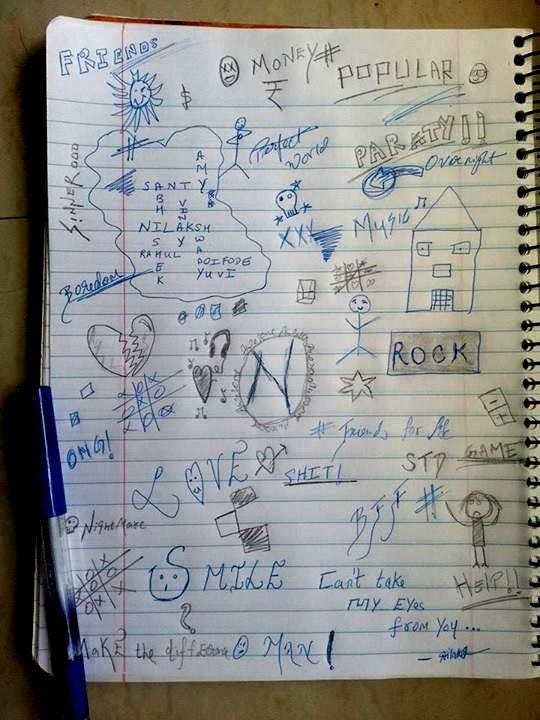 FRIENDS
MONEY #
₹
POPULAR
$
#
Perfect
World
PARATY!!
Overnight
SINNER
AMY
SANTY
NILAKSH
RAHUL
DOIFODE
YUVI
XXX
Music
Boredom
N
ROCK
OMG!
# Friends for life
LOVE
SHIT!
STD
GAME
BFF #
NightMare
SMILE
Can't take
MY Eyes
from You...
HELP!!
?
MaKE the difference MAN!